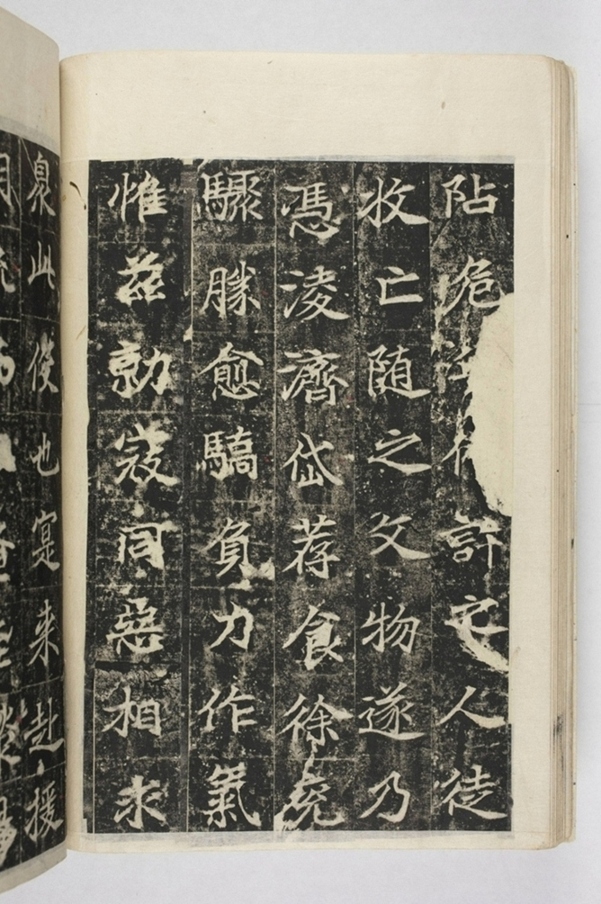 阽危
許它人徒
收亡随之文物遂乃
憑淩濟岱荐食徐兖
驟勝愈驕負力作氣
惟兹勍寇同惡相求
泉此俊也寔来赴援